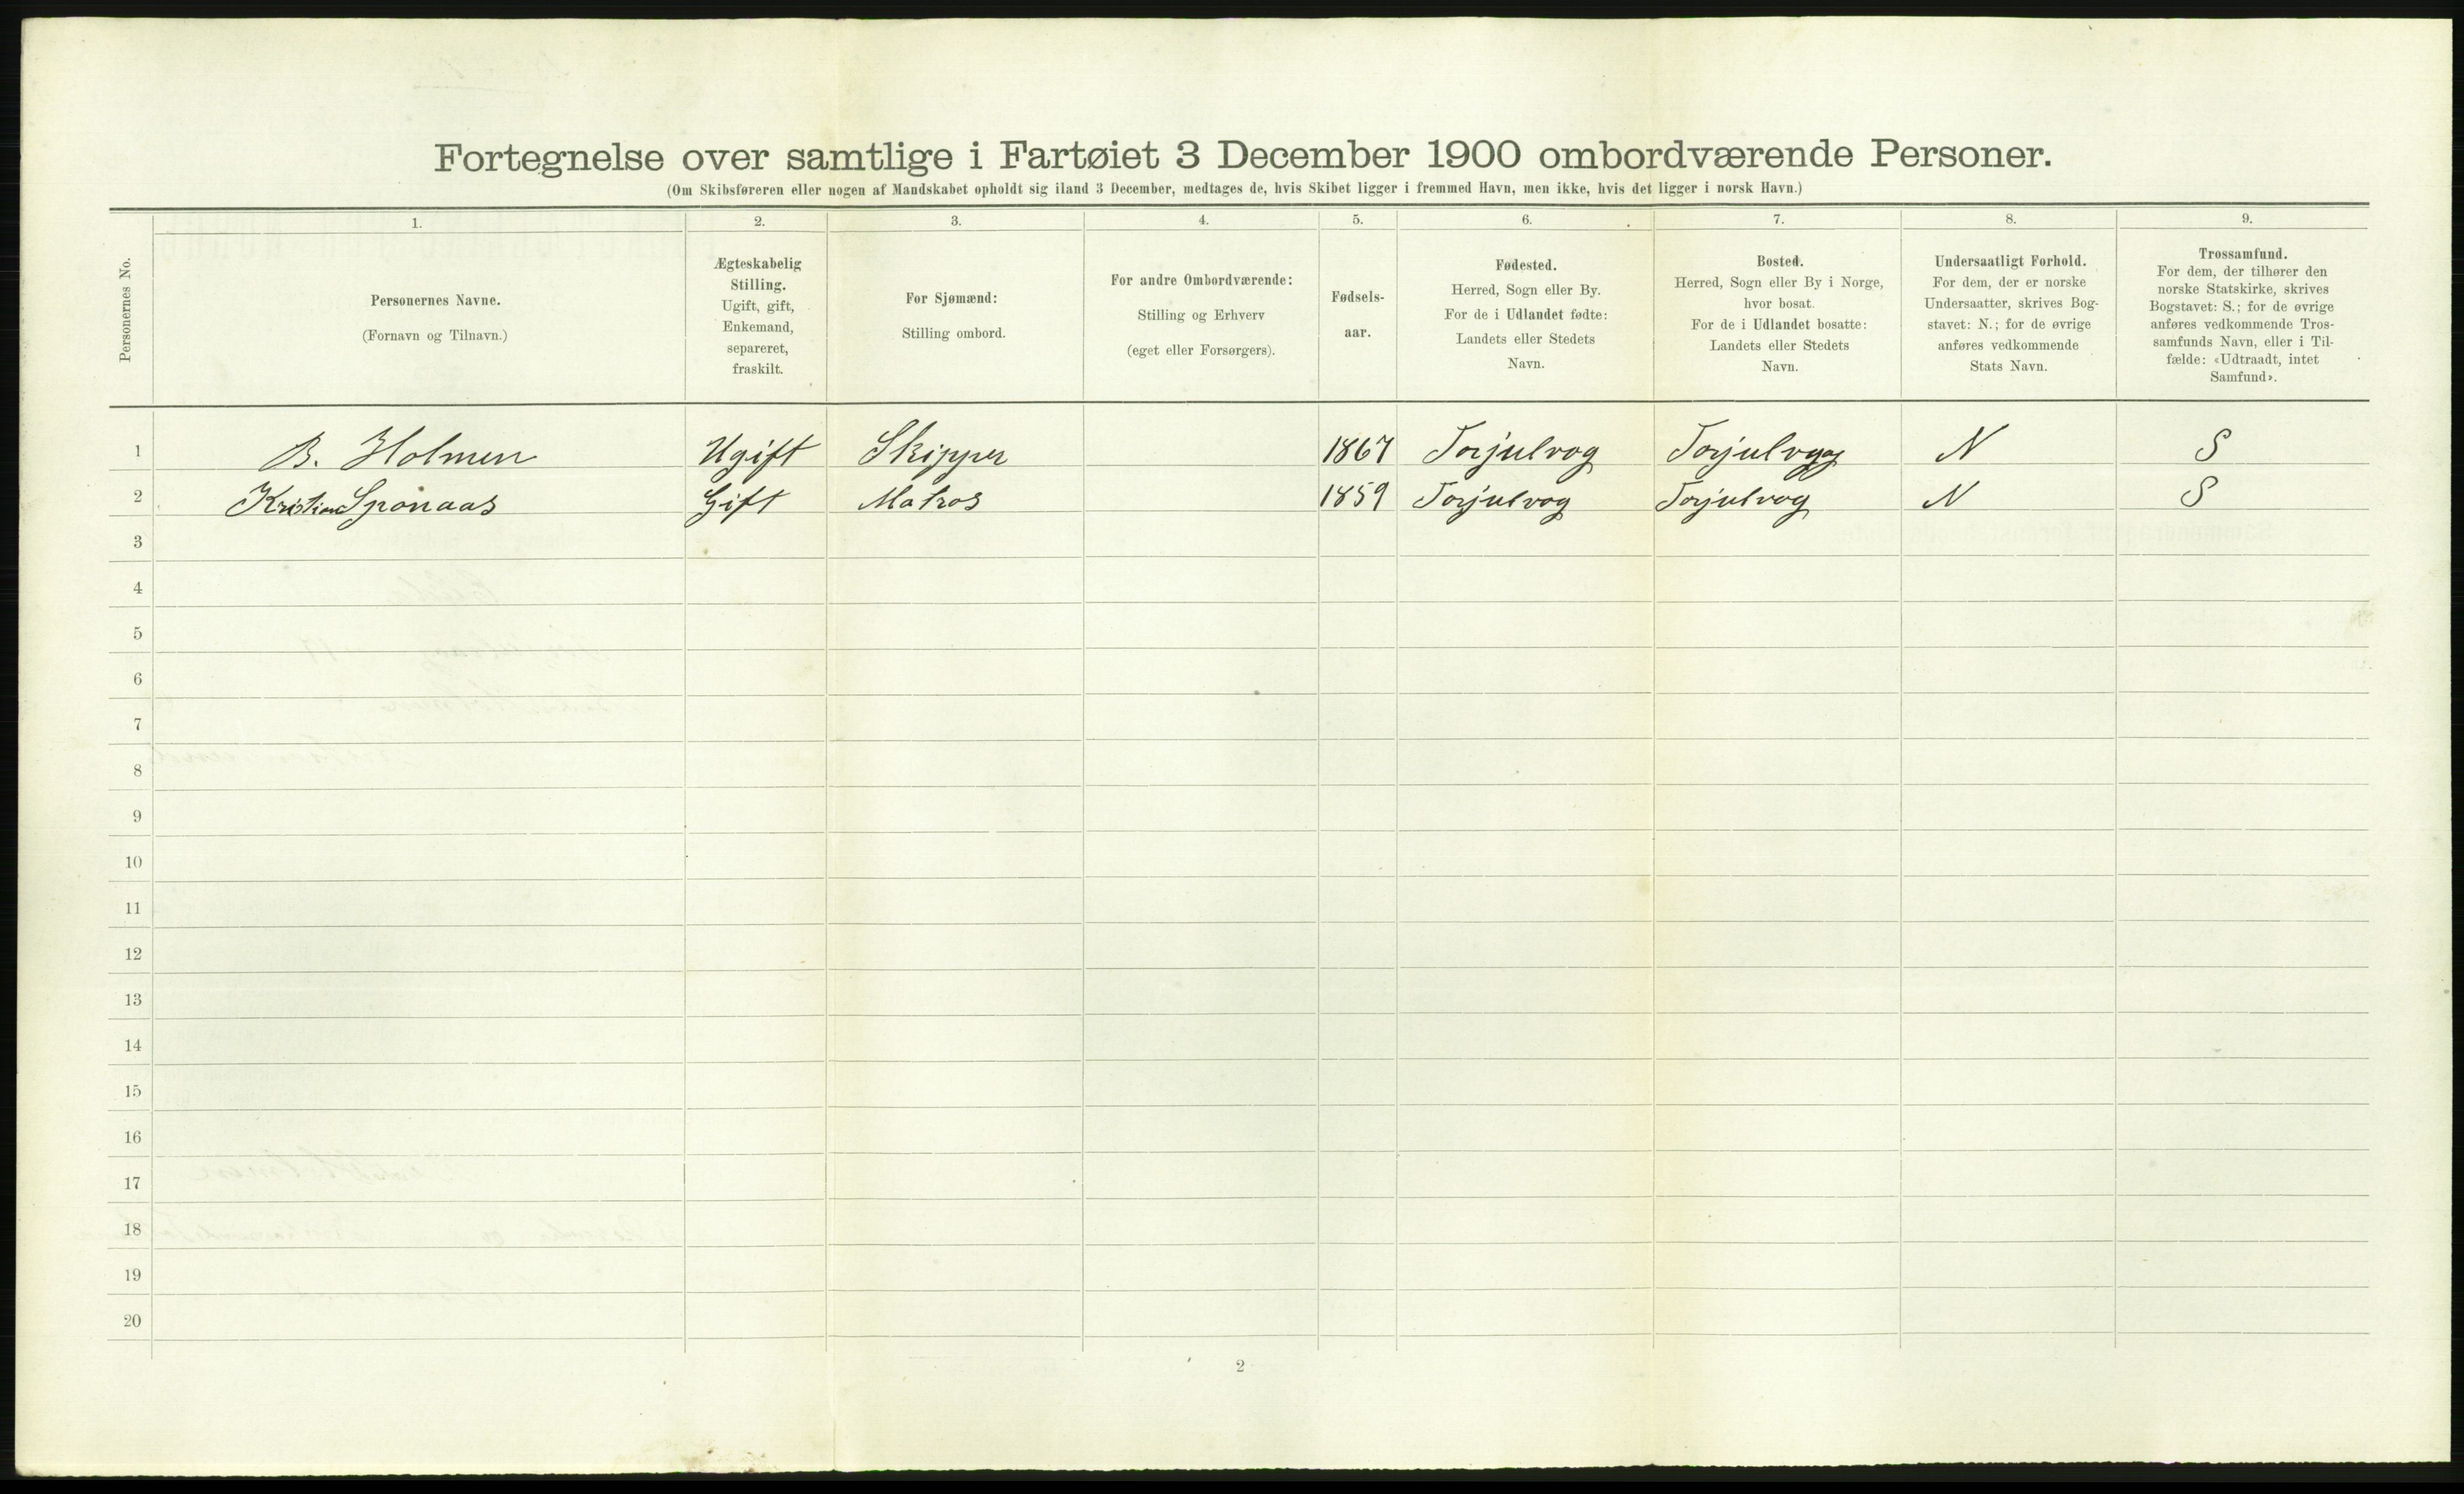 Fortegnelse over samtlige i Fartøiet 3 December 1900 ombordværende Personer.
(Om Skibsføreren eller nogen af Mandskabet opholdt sig iland 3 December, medtages de, hvis Skibet ligger i fremmed Havn, men ikke, hvis det ligger i norsk Havn.)
Personernes No.
1.
Personernes Navne.
(Fornavn og Tilnavn.)
2.
Ægteskabelig
Stilling.
Ugift, gift,
Enkemand,
separeret,
fraskilt.
3.
For Sjømænd:
Stilling ombord.
4.
For andre Ombordværende:
Stilling og Erhverv
(eget eller Forsørgers).
5.
Fødsels-
aar.
6.
Fødested.
Herred, Sogn eller By.
For de i Udlandet fødte:
Landets eller Stedets
Navn.
7.
Bosted.
Herred, Sogn eller By i Norge,
hvor bosat.
For de i Udlandet bosatte:
Landets eller Stedets
Navn.
8.
Undersaatligt Forhold.
For dem, der er norske
Undersaatter, skrives Bog-
stavet: N.; for de øvrige
anføres vedkommende
Stats Navn.
9.
Trossamfund.
For dem, der tilhører den
norske Statskirke, skrives
Bogstavet: S.; for de øvrige
anføres vedkommende Tros-
samfunds Navn, eller i Til-
fælde: «Udtraadt, intet
Samfund».
1 B. Holmen Ugift Skipper 1867 Torjulvog Torjulvog N S
2 Kristian Sponaas Gift Matros 1859 Torjulvog Torjulvog N S
3
4
5
6
7
8
9
10
11
12
13
14
15
16
17
18
19
20
2